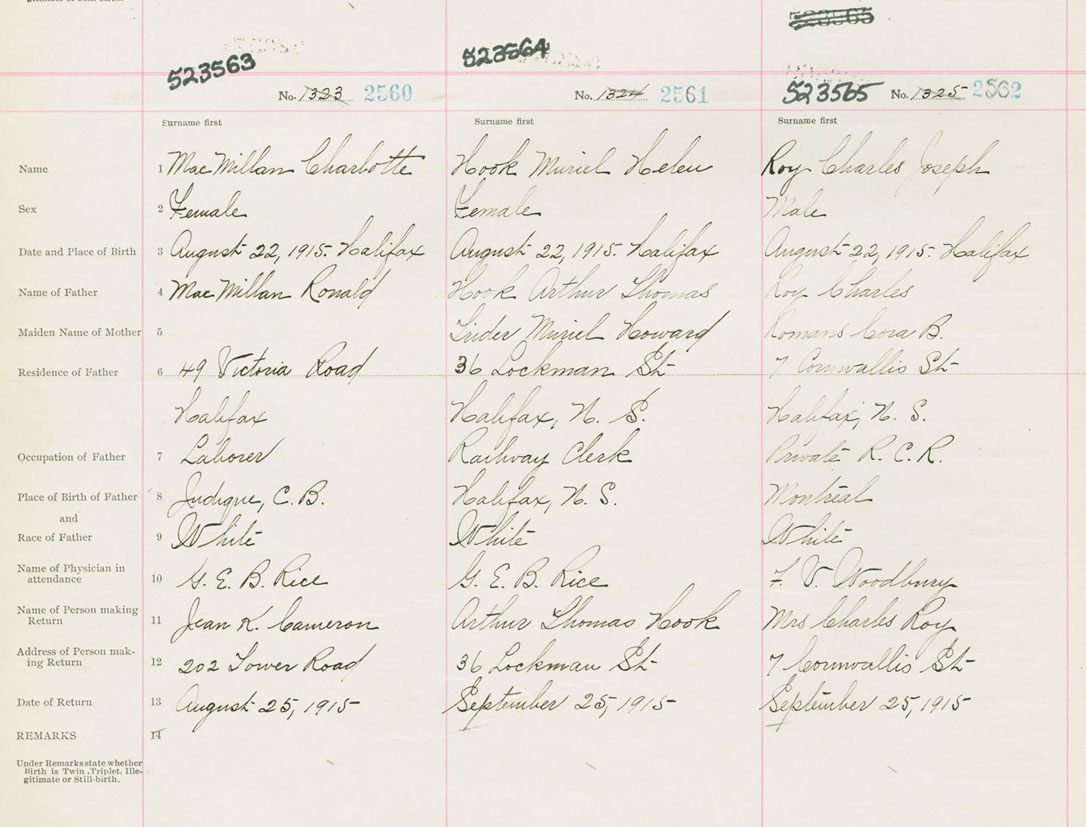 gitimate or Still-birth.
523563
523564
523565
No. 1323 2560
No. 1324 2561
523565 No. 1325 2562
Surname first Surname first Surname first
Name 1 MacMillan Charlotte Hook Muriel Helen Roy Charles Joseph
Sex 2 Female Female Male
Date and Place of Birth 3 August 22, 1915. Halifax August 22, 1915. Halifax August 22, 1915. Halifax
Name of Father 4 MacMillan Ronald Hook Arthur Thomas Roy Charles
Maiden Name of Mother 5 Muriel Howard Romans Cora B.
Residence of Father 6 49 Victoria Road 36 Lockman St 7 Cornwallis St
Halifax Halifax, N. S. Halifax, N. S.
Occupation of Father 7 Laborer Railway Clerk Private R. C. R.
Place of Birth of Father 8 Judique, C. B. Halifax, N. S. Montreal
and
Race of Father 9 White White White
Name of Physician in
attendance 10 G. E. B. Rice G. E. B. Rice F. V. Woodbury
Name of Person making
Return 11 Jean K. Cameron Arthur Thomas Hook Mrs Charles Roy
Address of Person mak-
ing Return 12 202 Tower Road 36 Lockman St 7 Cornwallis St
Date of Return 13 August 25, 1915 September 25, 1915 September 25, 1915
REMARKS 14
Under Remarks state whether
Birth is Twin, Triplet, Ille-
gitimate or Still-birth.